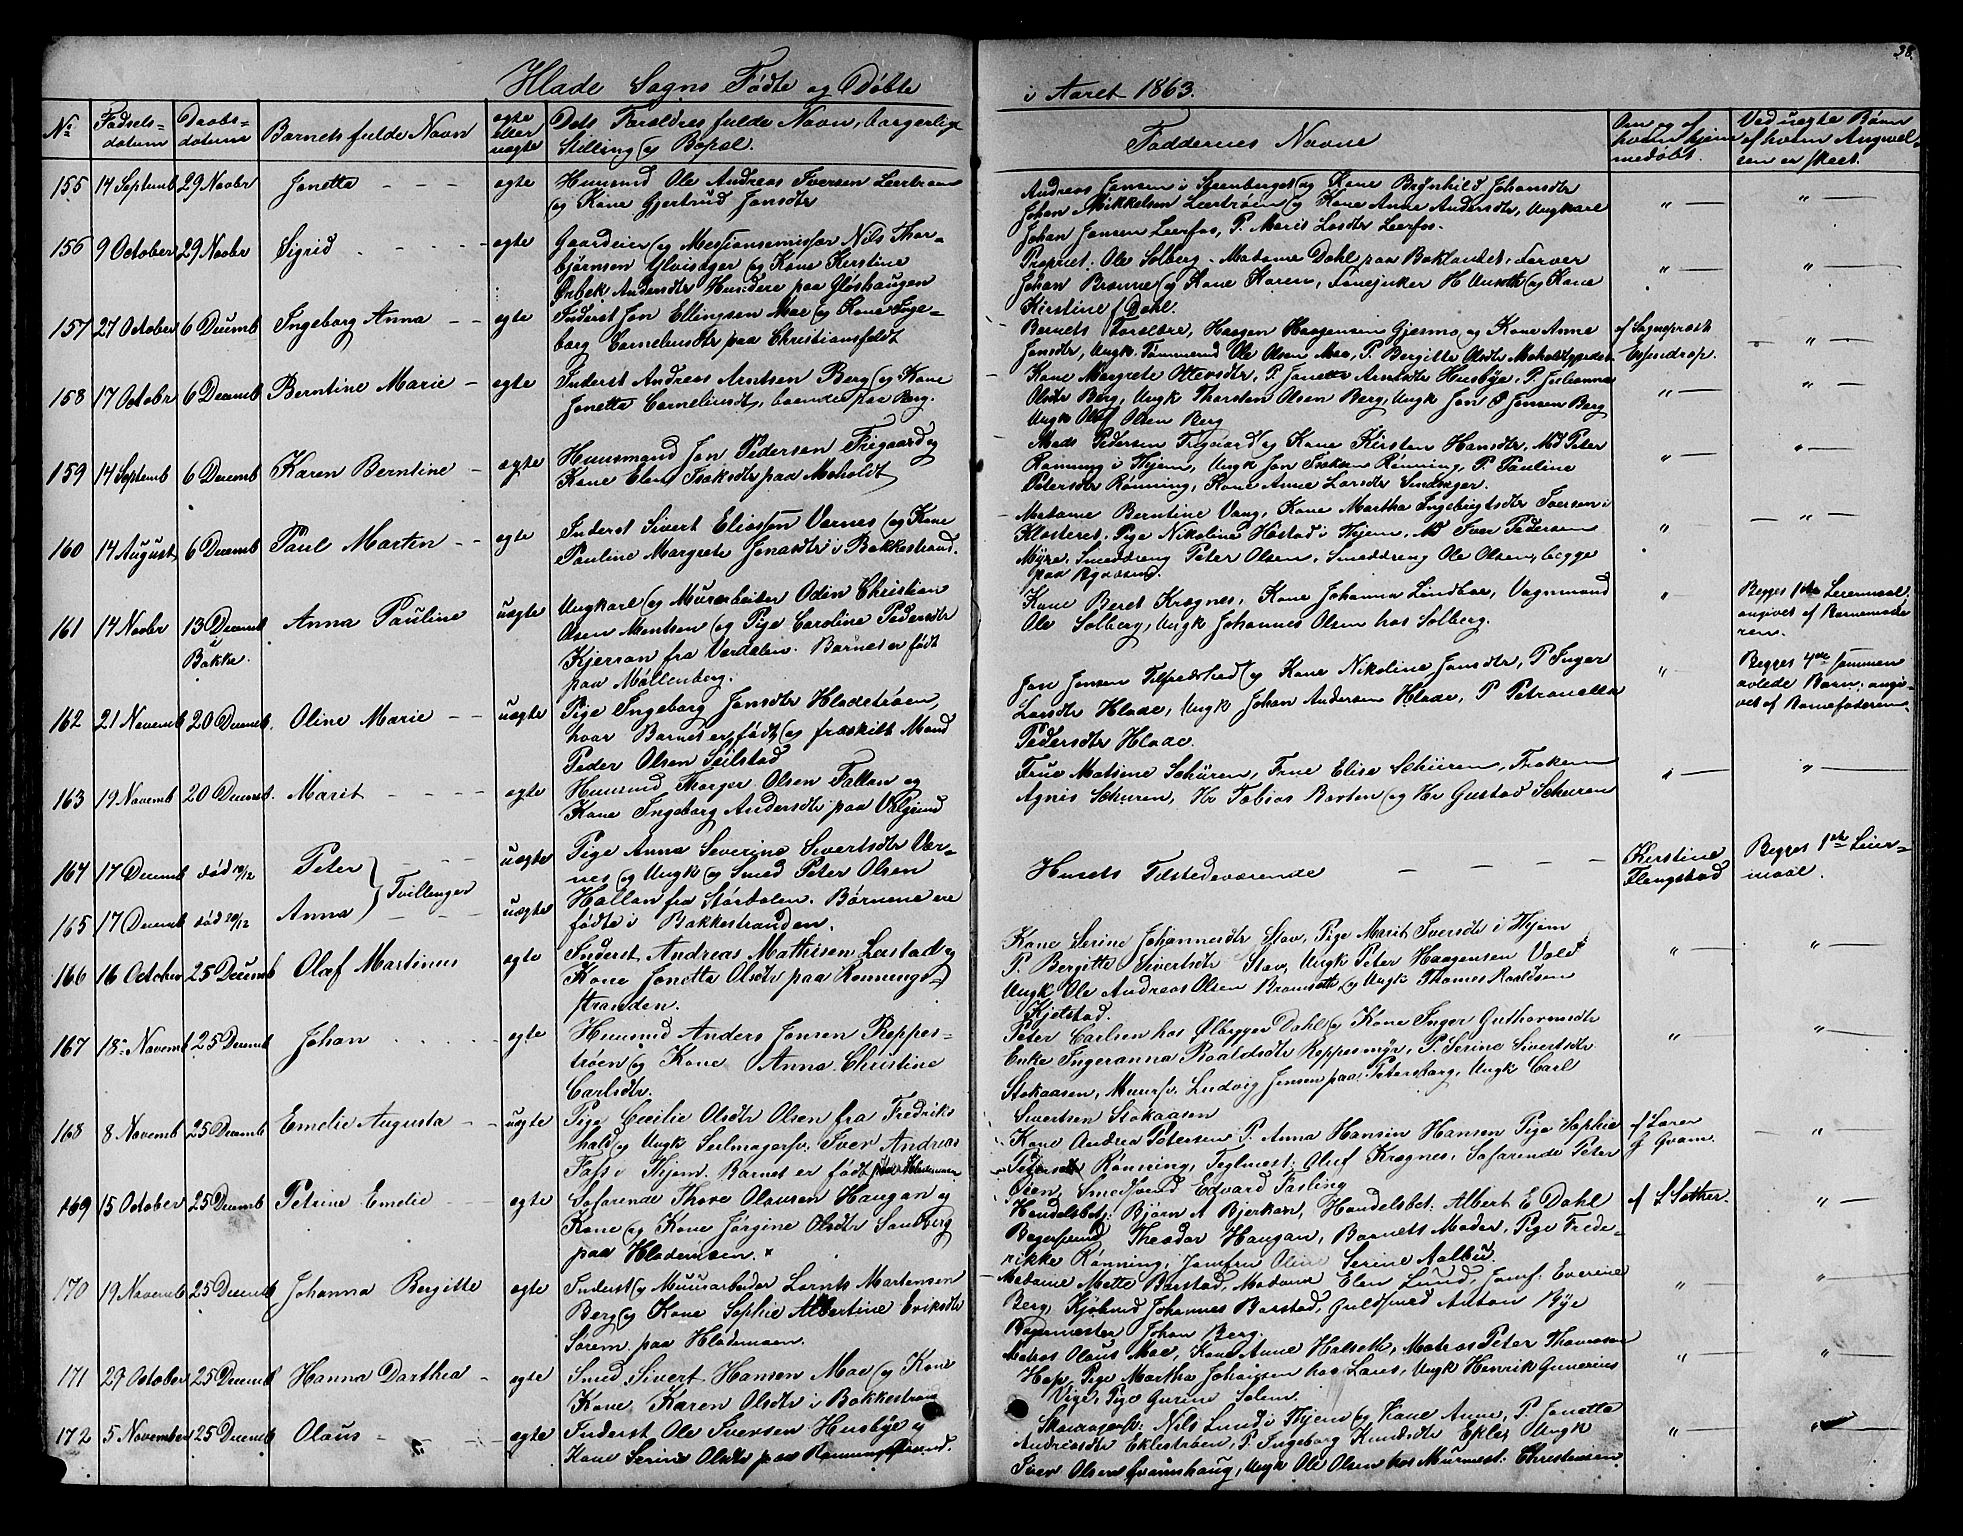 38.
Hlade Sogns Fødte og Døbte i Aaret 1863.
No | Fødsels-datum | Daabs-datum | Barnets fulde Navn | ægte eller uægte | Dets Forældres fulde Navn, borgerlige Stilling og Bopæl. | Faddernes Navne | Om og af hvem hjem-medøbt. | Ved uægte Børn af hvem Angivel-sen er skeet.
155 14 Septemb 29 Novbr Jonetta - - - ægte Huusmd Ole Andreas Iversen Leertrøen
og Kone Gjertrud Jonsdtr
Andreas Jonsen i Steenberget og Kone Brynhild Johansdtr
Johan Mikkelsen Leertrøen og Kone Anne Andersdtr, Ungkarl
Johan Jonsen Leerfos, P. Marit Larsdtr Leerfos. " "
156 9 October 29 Novbr Sigrid - - - ægte Gaardeier og Missionsemissær Nils Thor-
bjørnsen Ylvisager og Kone Kirstine
Ørbek Andersdtr Hundere paa Gløshaugen
Propriet. Ole Solberg - Madame Dahl paa Baklandet. Farver
Johan Bromne og Kone Karen, Fanejunker H og Kone
Kirstine f Dahl. " "
157 27 October 6 Decemb Ingeborg Anna - - ægte Inderst Jon Ellingsen Moe og Kone Inge-
borg Corneliusdtr paa Christiansfeldt
Barnets Forældre, Haagen Haagensen Gjesmo og Kone Anne
Jonsdtr, Ungk. Tømmermd Ole Olsen Moe, P. Bergitte Olsdtr
af Sognepræst
Espendrop. "
158 17 Octobr 6 Decemb Berntine Marie - ægte Inderst Andreas Arntsen Berg og Kone
Jonetta Corneliusdtr, boende paa Berg.
Kone Margrete Ottersdtr, P. Jonetta Arntsdtr Husbye, P. Julianna
Olsdtr Berg, Ungk Thorsten Olsen Berg, Ungk Jon Jonsen Berg
Ungk Olaf Olsen Berg " "
159 14 Septemb 6 Decemb Karen Berntine - ægte Huusmand Jon Pedersen Trøgaard og
Kone Elen Isaksdtr paa Moholdt
Mads Pedersen Trøgaard og Kone Kirsten Hansdtr, Md Peter
Rønning i Hjem, Ungk Jon Isaksen Rønning, P. Pauline
Petersdtr Rønning, Kone Anne Larsdtr " "
160 14 August 6 Decemb Paul Martin - - ægte Inderst Sivert Eliassøn Vornes og Kone
Pauline Margrete Jonasdtr i Bakkestrand.
Madame Berntine Vang, Kone Martha Ingebrigtsdtr Iversen i
Klosteret, Pige Nikoline Hostad i Hjem, Md Iver Pedersen
Myre, Smeddreng Peter Olsen, Smeddreng Ole Olsen, begge
paa " "
161 14 Novbr 13 Decemb
i
Bakke. Anna Pauline uægte Ungkarl og Murarbeider Odin Christian
Olsen Monsen og Pige Caroline Pedersdtr
Kjerran fra Værdalen. Barnet er født
paa Møllenberg.
Kone Beret Krognes, Kone Johanna Lindboe, Vognmand
Ole Solberg, Ungk Johannes Olsen hos Solberg. "
Begges 1ste Leiermaal,
angivet af Barnemode-
ren.
162 21 Novemb 20 Decemb. Oline Marie - - uægte Pige Ingeborg Jonsdtr Hladetrøen,
hvor Barnet er født, og fraskilt Mand
Peder Olsen Seilstad
Jon Jonsen Tilfredshed og Kone Nikoline Jonsdtr, P Inger
Larsdtr Hlade, Ungk Johan Andersen Hlade, P Petronella
Pedersdtr Hlade. "
Begges 4de sammen
avlede Barn, angi-
vet af Barnefaderen.
163 19 Novemb 20 Decemb. Marit - - - - ægte Huusmd Thorger Olsen Fallan og
Kone Ingeborg Andersdtr paa Valgrind
Frue Matsine Schüren, Frue Elise Schüren, Frøken
Agnis Schuren, Hr Tobias Barten og Hr Gustad Schuren " "
164 17 Decemb død 19/12 Peter - - - uægte Pige Anna Severine Sivertsdtr Vær-
nes og Ungk og Smed Peter Olsen
Tvillinger
165 17 Decemb død 20/12 Anna - - - uægte Hallan fra Størdalen. Børnene ere
fødte i Bakkestranden.
Husets Tilstedeværende - - - -
Kirstine
Flengstad
Begges 1ste Leier-
maal.
166 16 October 25 Decemb Olaf Martinus ægte Inderst Andreas Mathisen Lastad og
Kone Jonetta Olsdtr paa Rønnings-
stranden.
Kone Serine Johannesdtr Stav, Pige Marit Iversdtr i Hjem
P. Bergitte Sivertsdtr Stav, Ungk Peter Haagensen Vold
Ungk Ole Andreas Olsen og Ungk Thomas Roaldsen
Kjelstad. " "
167 18 Novemb 25 Decemb Johan - - - ægte Huusmd Anders Jonsen Reppes-
trøen og Kone Anna Christine
Carlsdtr.
Peter Carlsen hos Ølbrygger Dahl og Kone Inger Guthormsdtr
Enke Ingeranna Roaldsdtr Reppesmyr, P. Serine Sivertsdtr
Stokaasen, Muursv. Ludvig Jensen paa Petersborg, Ungk Carl
Sivertsen Stokaasen " "
168 8 Novemb 25 Decemb Emelie Augusta - - uægte Pige Cecilie Olsdtr Olsen fra Fredriks
hald og Ungk Seilmagersv. Iver Andreas
i Hjem. Barnet er født paa Hlademoen
Kone Andrea Petersen P. Anna Hansin Hansen Pige Sophie
Petersdtr Rønning, Teglmest. Oluf Krognes, Søfarende Peter
Øien, Smedsvend Edvard Fasling
af Lærer
G Gram. "
169 15 October 25 Decemb Petrine Emelie - - ægte Søfarende Thore Olausen Haugan og
Kone og Kone Jørgine Olsdtr Sandberg
paa Hlademoen.
Handelsbetj. Bjørn A Bjerkan, Handelsbet. Albert E Dahl
Bagersvend Theodor Haugan, Barnets Moder, Pige Frede-
rikke Rønning, Jomfru Oline Serine Aalbu.
af S. Sæther. "
170 19 Novemb 25 Decemb Johanna Bergitte ægte Inderst og Muurarbeider Lornts Martensen
Berg og Kone Sophie Albertine Eriksdtr
Sørem paa Hlademoen.
Madame Mette Barstad, Madame Elen Lund, Jomf. Everine
Berg, Kjøbmd Johannes Barstad, Guldsmed Anton Bye
Bagermester Johan Berg. " "
171 29 October 25 Decemb Hanna Dorthea - ægte Smed Sivert Hansen Moe og Kone
Kone Karen Olsdtr i Bakkestranden
Matros Olaus Moe, Kone Anne Halseth, Matros Peter Thomesen
Hop, Pige Martha Johansen hos Lares, Ungk Henrik Gunerius
Vige, Pige Gurine Solem. " "
172 5 November 25 Decemb Olaus - - ægte Inderst Ole Iversen Husbye og
Kone Serine Olsdtr paa
Nils Lund i Hjem og Kone Anne, P. Jonetta
Andreasdtr Eklestrøen, P Ingeborg Knudsdtr Ekle, Ungk
Iver Olsen Gramshaug, Ungk Ole Olsen hos Murmest. Christensen " "